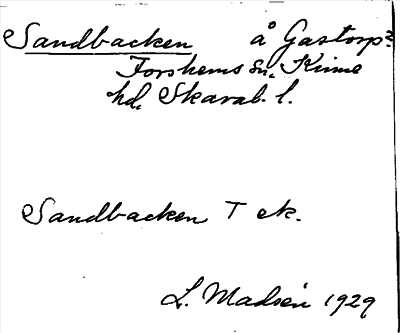 Sandbacken å Gastorp?
Forshems sn. Kinne
hd. Skarab. l.
Sandbacken T ek.
L. Madsén 1929